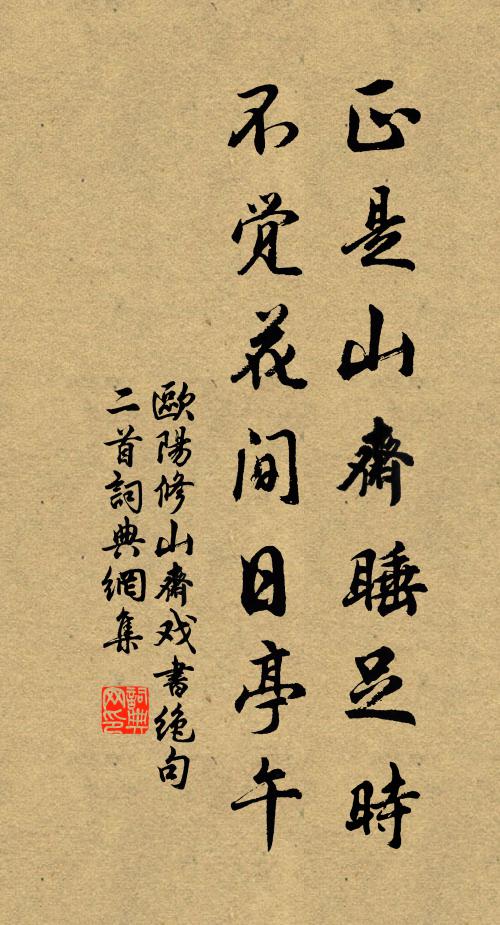 正是山齋睡足時
不觉花间日亭午
歐陽修山齋戏書绝句
二首詞典網集
詞典
网印